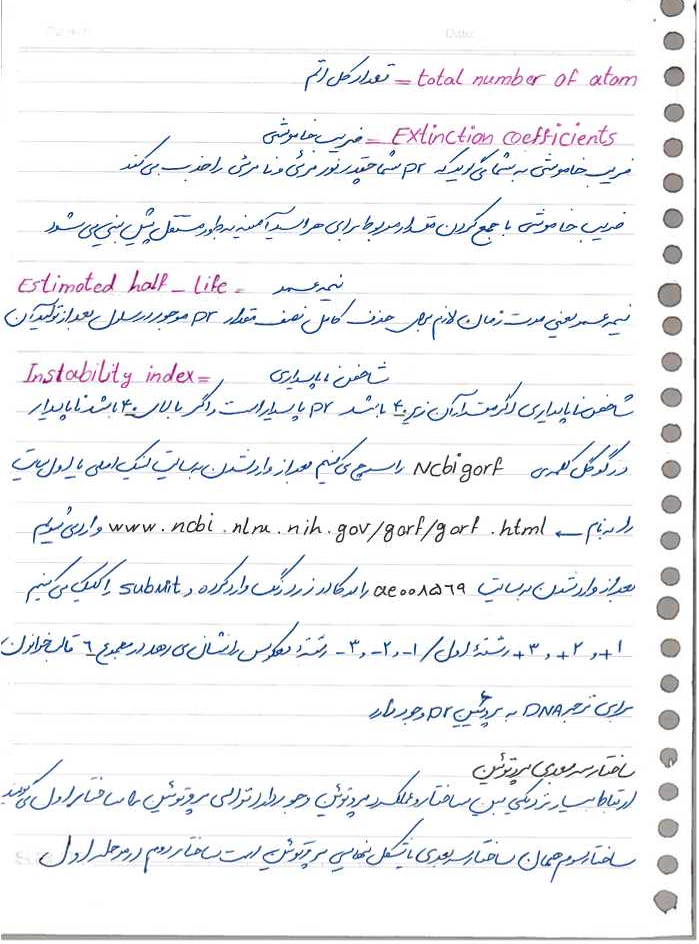 total number of atom = تعداد کل اتم
Extinction coefficients = ضریب خاموشی
ضریب خاموشی به شما می گوید که pr شما چقدر نور مرئی و نا مرئی را جذب می کند
ضریب خاموشی با جمع کردن مقدار مربوط برای هر اسید آمینه به طور مستقل پیش بینی می شود
Estimated half_life = نیمه عمر
نیمه عمر یعنی مدت زمان لازم برای حذف کامل نصف مقدار pr موجود در سلول بعد از تولید آن
Instability index = شاخص ناپایداری
شاخص ناپایداری اگر مقدار آن زیر ۴۰ باشد pr پایدار است و اگر بالای ۴۰ باشد ناپایدار
در گوگل کلمه ی Ncbi gorf را سرچ می کنیم بعد از وارد شدن به سایت لینک اصلی یا اول سایت
را به نام ← www.ncbi.nlm.nih.gov/gorf/gorf.html وارد می شویم
بعد از وارد شدن به سایت ae008569 را در کادر زرد رنگ وارد کرده و submit را کلیک می کنیم
+1 و +2 و +3 رشته اول / -1 و -2 و -3 رشته معکوس را نشان می دهد در مجموع 6 قالب خواندن
برای ترجمه DNA به پروتئین pr وجود دارد
ساختار سه بعدی پروتوئین
ارتباط بسیار نزدیکی بین ساختار و عملکرد پروتوئین وجود دارد توالی پروتوئین را ساختار اول می گویند
ساختار سوم همان ساختار سه بعدی یا شکل نهایی پروتوئین است ساختار دوم در مرحله اول